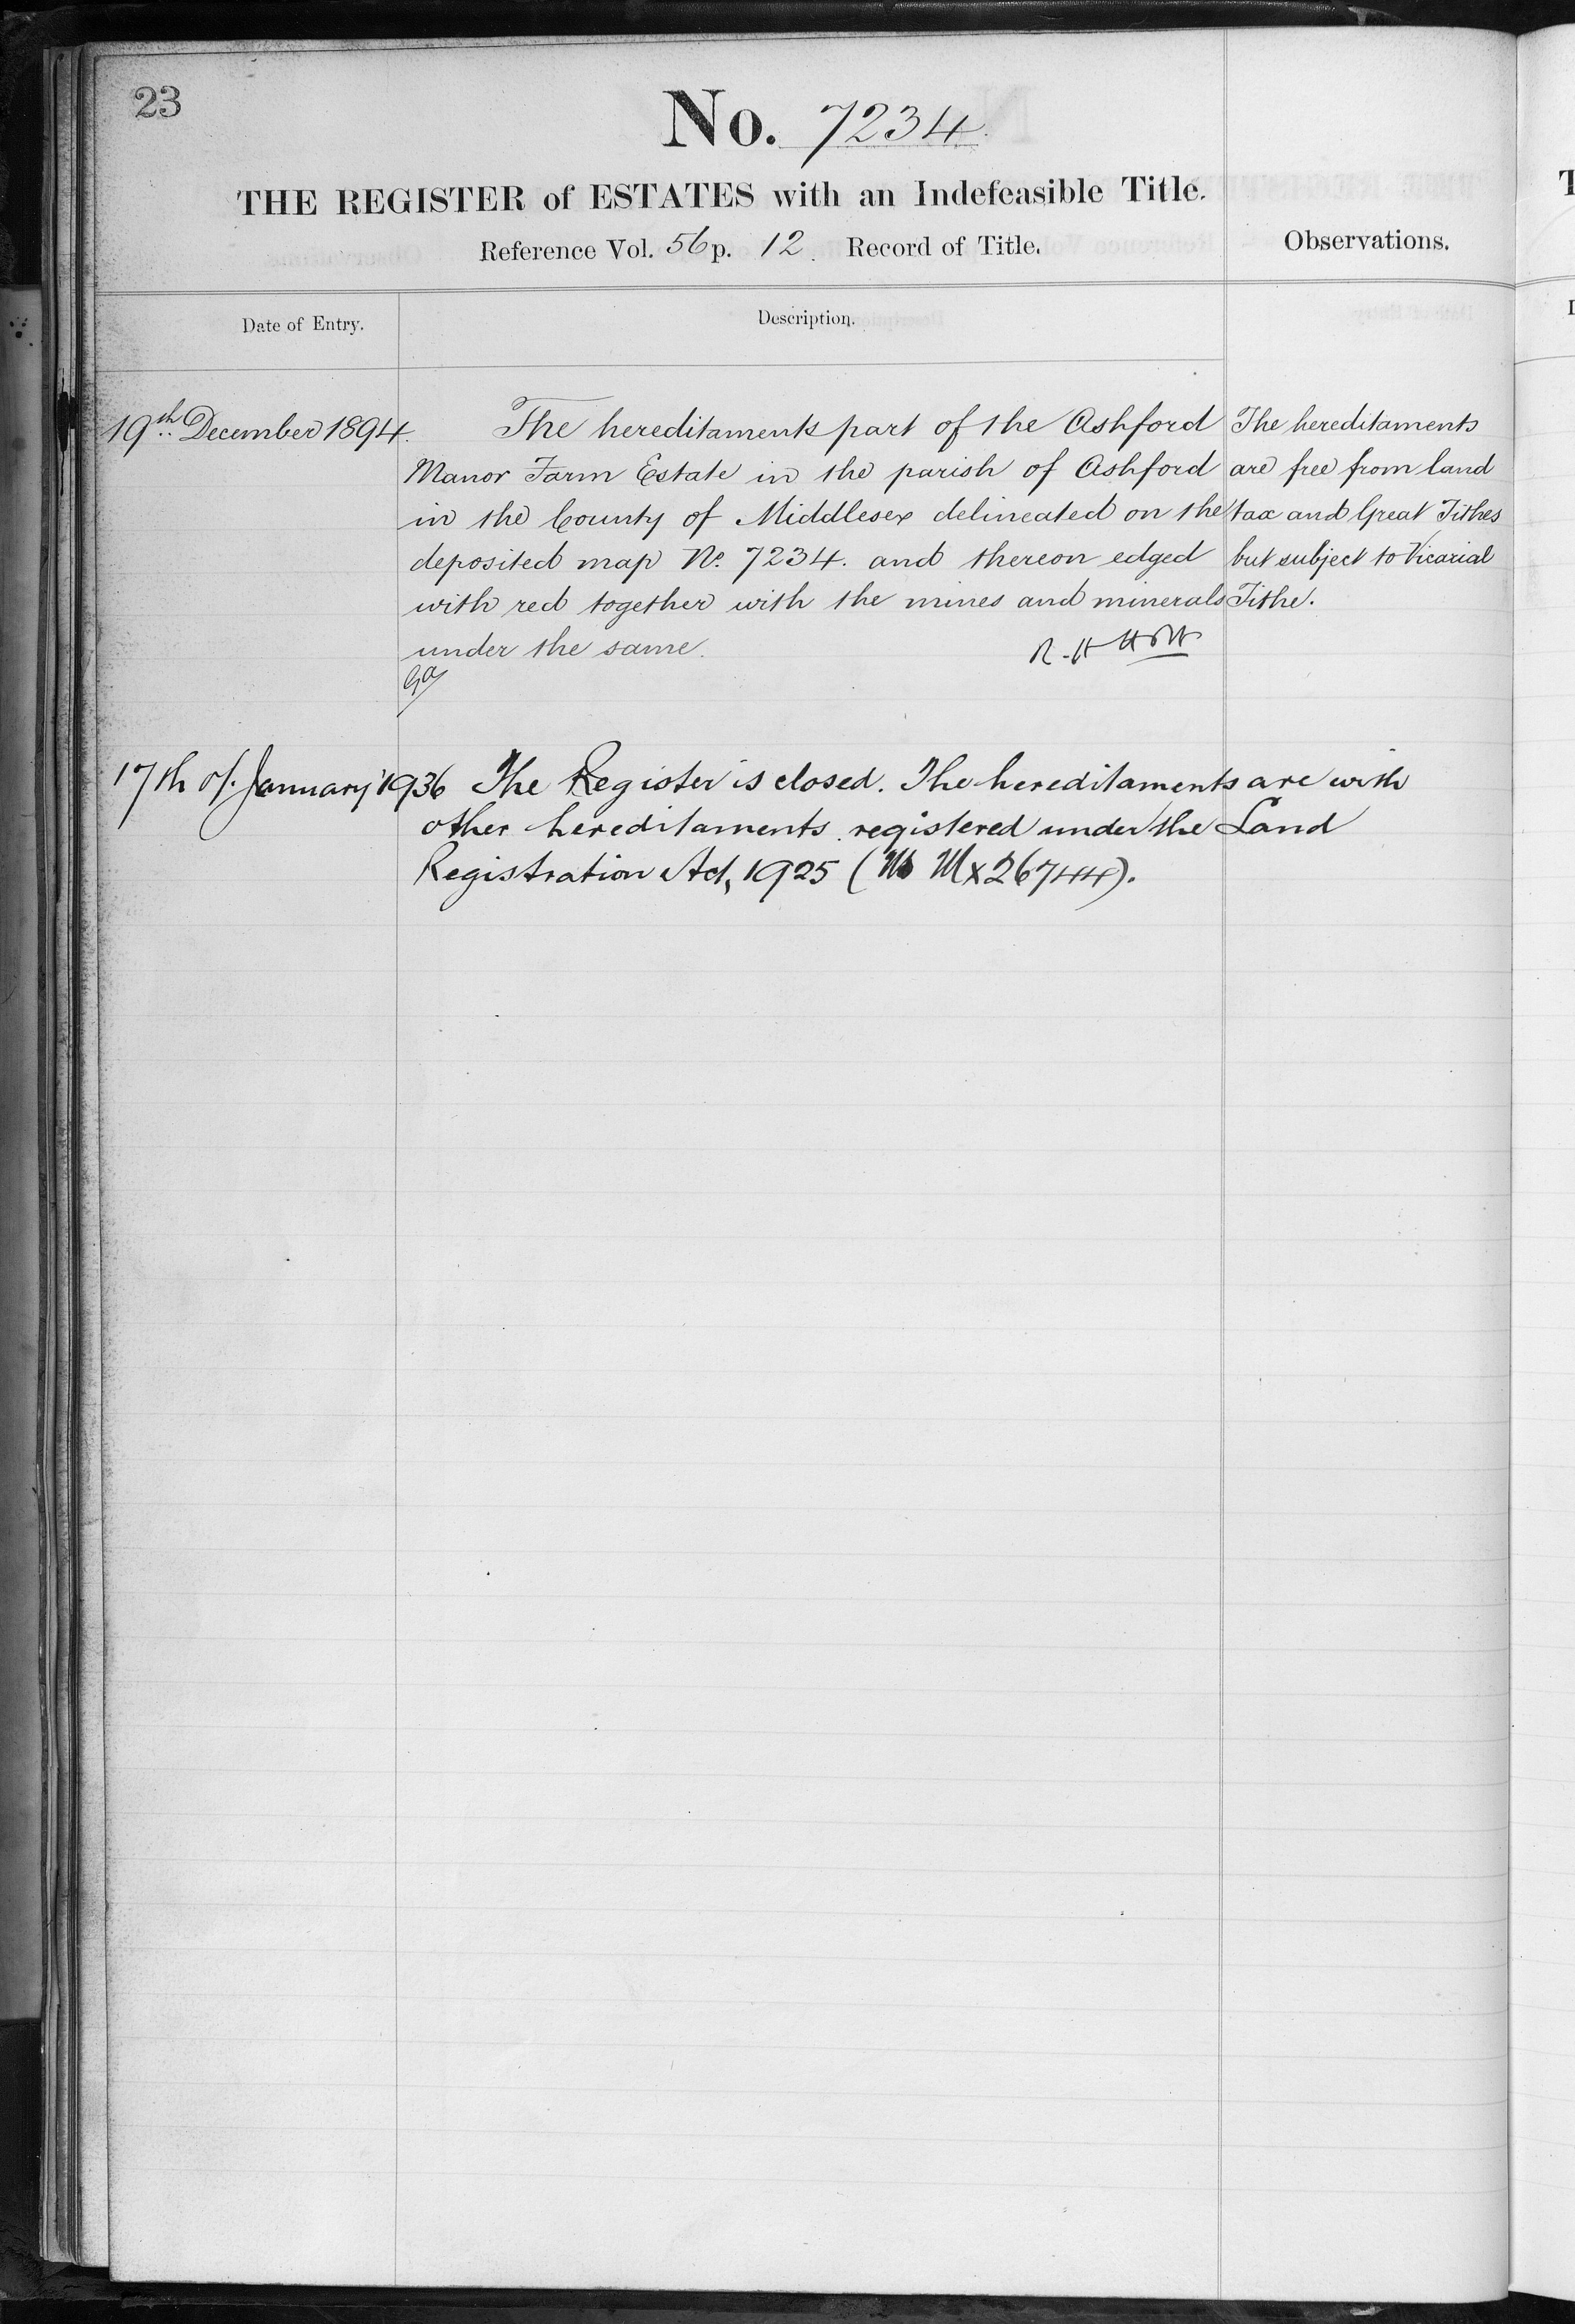 23
No. 7234
THE REGISTER of ESTATES with an Indefeasible Title.
Reference Vol. 56 p. 12. Record of Title.
Observations.
Date of Entry.
Description.
19th December 1894.
The hereditaments part of the Ashford
Manor Farm Estate in the parish of Ashford
in the County of Middlesex delineated on the
deposited map No. 7234. and thereon edged
with red together with the mines and minerals
under the same.
The hereditaments
are free from land
tax and Great Tithes
but subject to Vicarial
Tithe.
17th of January 1936 The Register is closed. The hereditaments are with
other hereditaments registered under the Land
Registration Act, 1925 (Mx 26744).